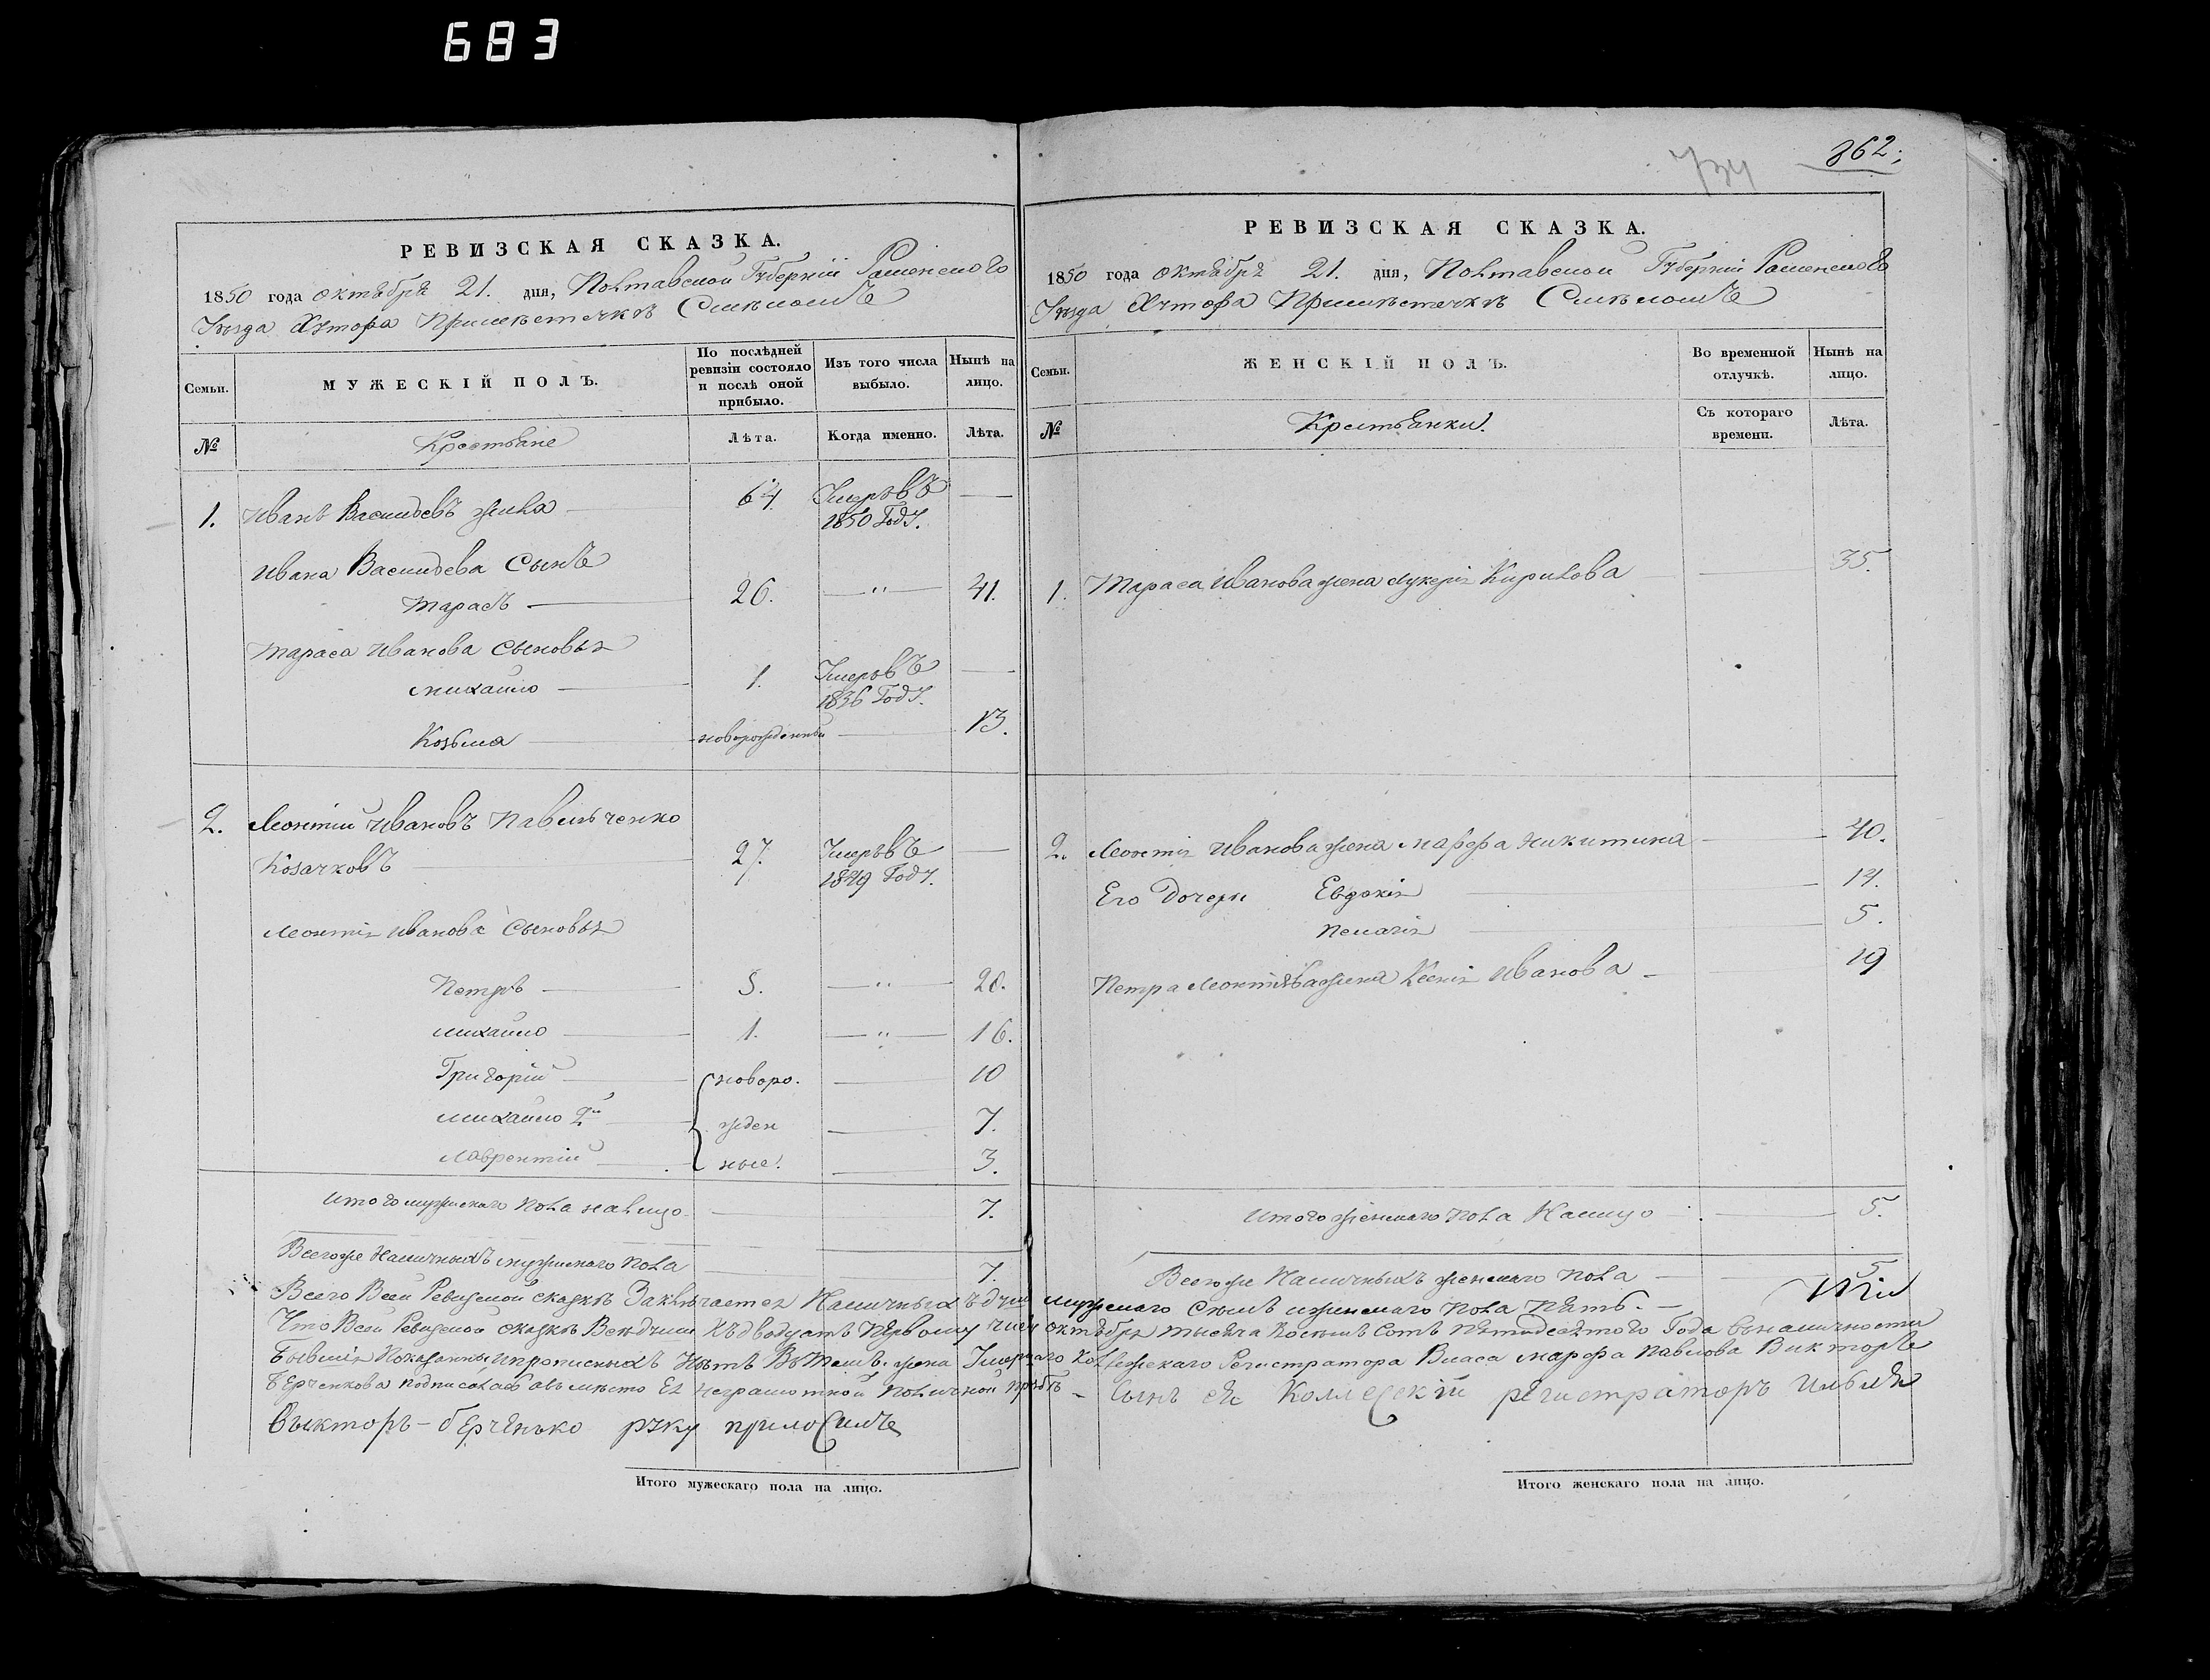 683
362.
734
РЕВИЗСКАЯ СКАЗКА.
1850 года октября 21. дня, Полтавской Губерніи Роменского
Уезда Хутора При местечке Смелом
Семьи.
МУЖЕСКІЙ ПОЛЪ.
По последней ревизіи состояло и после оной прибыло.
Изъ того числа выбыло.
Ныне на лицо.
№
Крестьяне
Лета.
Когда именно.
Лета.
1. Иванъ Васильевъ 64. Умеръ въ —
1850 Году.
Ивана Васильева Сынъ
Тарасъ — 26. — " — 41.
Тараса Иванова Сыновья
Михайло — 1. Умеръ въ —
1836 Году.
Козьма — новорожденный — 13.
2. Леонтій Ивановъ Павличенко
Козачковъ — 27. Умеръ въ —
1849 Году.
Леонтія Иванова Сыновья
Петръ — 5. — " — 20.
Михайло — 1. — " — 16.
Григорій — новоро. — 10
Михайло 2й — жден — 7.
Лаврентій — ные. — 3.
Итого мужескаго пола на лицо — 7.
Всего же Наличныхъ мужескаго пола — 7.
РЕВИЗСКАЯ СКАЗКА.
1850 года октября 21. дня, Полтавской Губерніи Роменского
Уезда Хутора При местечке Смелом
Семьи.
ЖЕНСКІЙ ПОЛЪ.
Во временной отлучке.
Ныне на лицо.
№
Крестьянки.
Съ котораго времени.
Лета.
1. Тараса Иванова жена Лукерія Кирилова — 35.
2. Леонтія Иванова жена Марфа Никитина — 40.
Его Дочери Евдокія — 14.
Пелагія — 5.
Петра Леонтіева жена Ксенія Иванова — 19
Итого женскаго пола На лицо — 5.
Всего же Наличныхъ женскаго пола — 5.
Всего В сей Ревизской сказке Заключается Наличныхъ душ мужскаго Семь и женскаго пола Пять. —
Что В сей Ревизской сказке Все души Къ двадцать Первому числу октября тысяча Восемь Сотъ Пятидесятого Года въ наличности
бывшія Показаны и прописныхъ Нетъ В томъ. жена Умершаго Коллежскаго Регистратора Власа Марфа Павлова
подписалась а въ место Ея неграмотной По личной прозьбе — Сынъ ея Коллежскій регистраторъ
руку приложилъ
Итого мужескаго пола на лицо.
Итого женскаго пола на лицо.